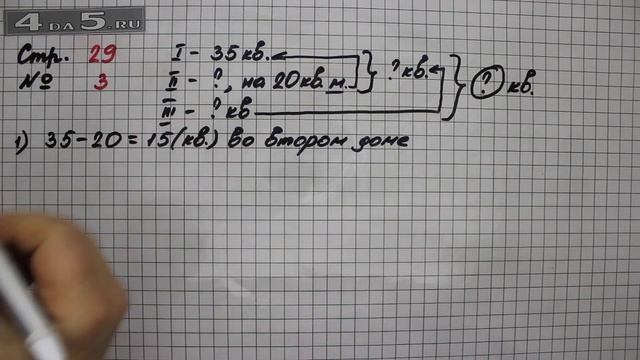 4DA5.RU
Стр. 29
№ 3
I - 35 кв.
II - ?, на 20 кв. м.
III - ? кв
? кв.
? кв.
1) 35-20=15(кв.) во втором доме